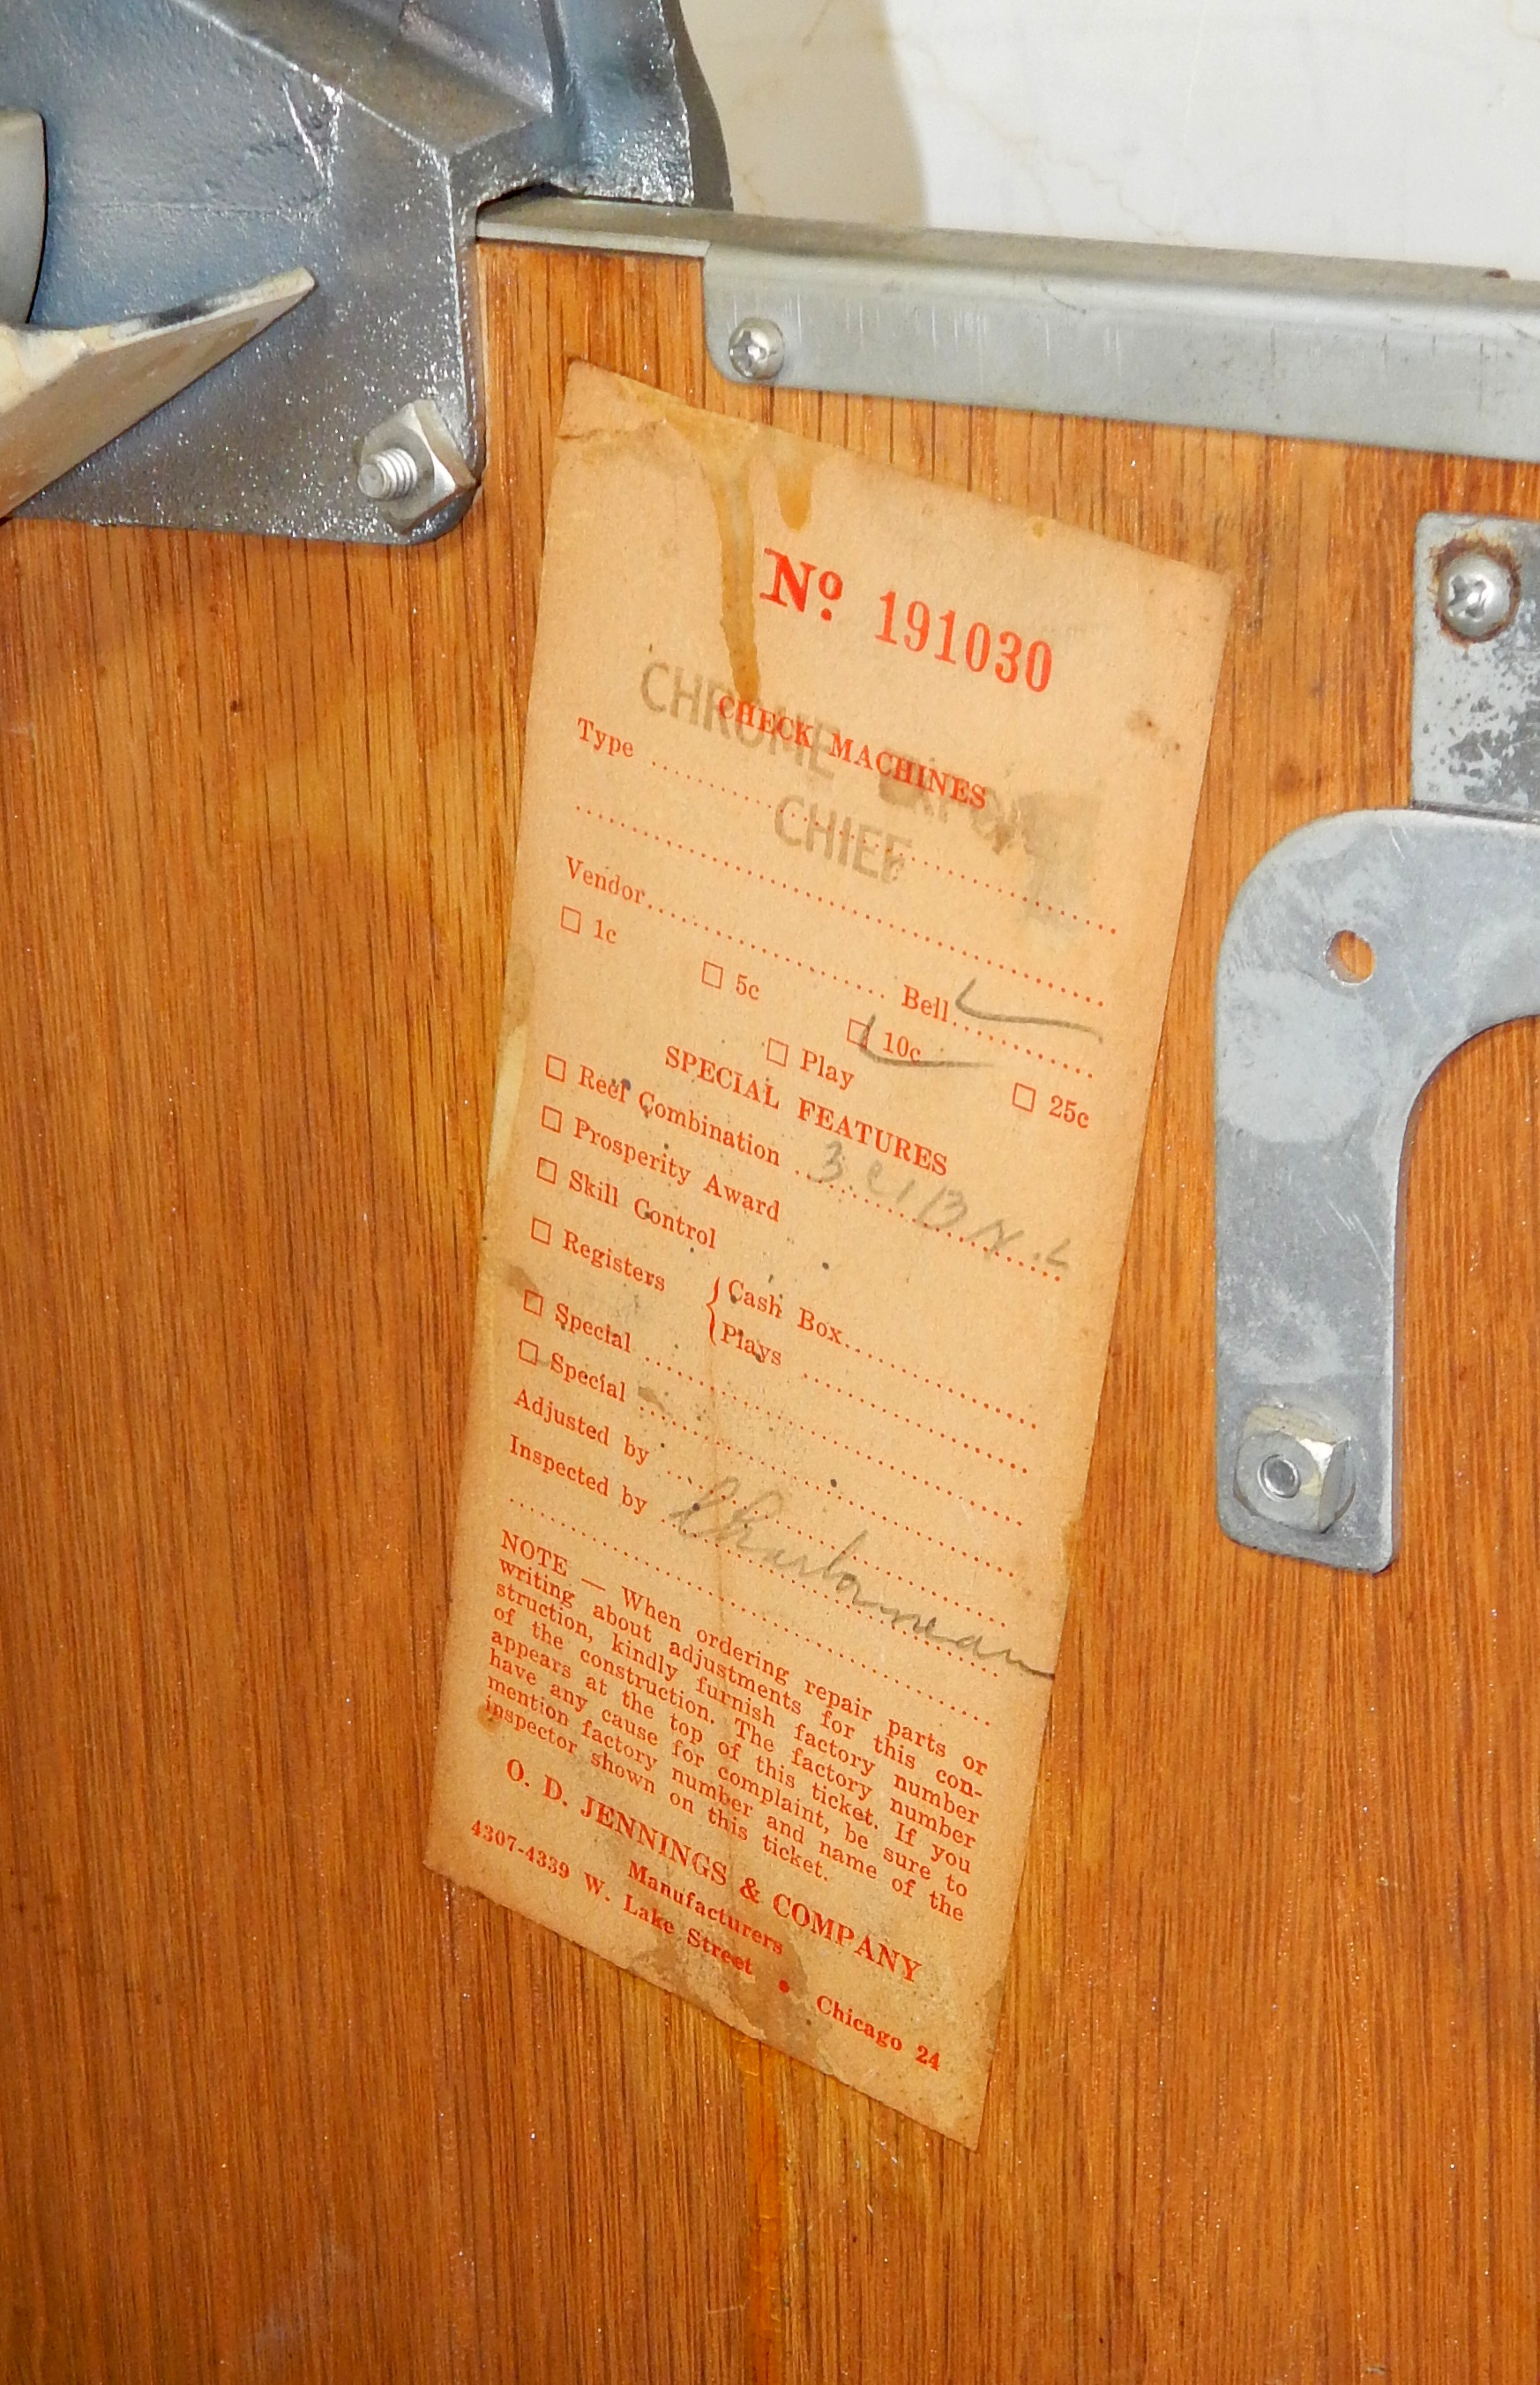 No. 191030
CHECK MACHINES
CHROME EXPORT
CHIEF
Type
Vendor
Bell
1c
5c
10c
25c
Play
SPECIAL FEATURES
Reel Combination
Prosperity Award
Skill Control
Registers { Cash Box
Plays
Special
Special
Adjusted by
Inspected by Charbonneau
NOTE — When ordering repair parts or
writing about adjustments for this con-
struction, kindly furnish factory number
of the construction. The factory number
appears at the top of this ticket. If you
have any cause for complaint, be sure to
mention factory number and name of the
inspector shown on this ticket.
O. D. JENNINGS & COMPANY
Manufacturers
4307-4339 W. Lake Street • Chicago 24